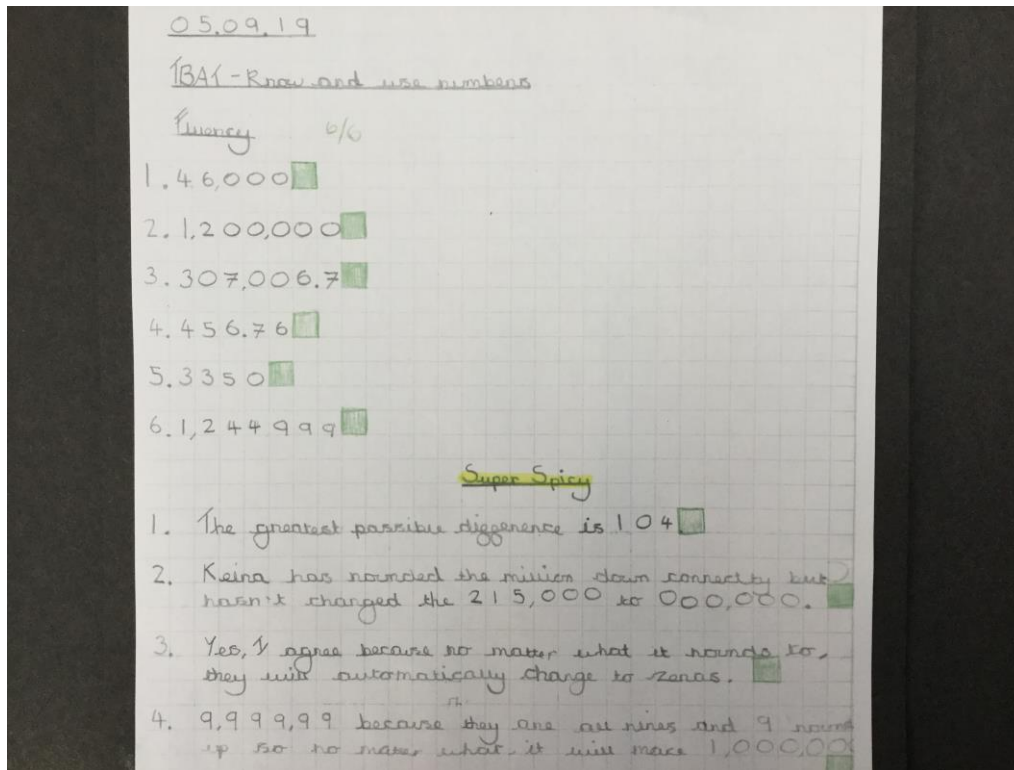 05.09.19
IBAT - Know and use numbers
Fluency 6/6
1. 46,000
2. 1,200,000
3. 307,006.7
4. 456.76
5. 3350
6. 1,244999
Super Spicy
1. The greatest possible difference is 104
2. Keina has rounded the million down correctly but
hasn't changed the 215,000 to 000,000.
3. Yes, I agree because no matter what it rounds to,
they will automatically change to zeros.
4. 9,999,99 because they are all nines and 9 round
up so no matter what it will make 1,000,00